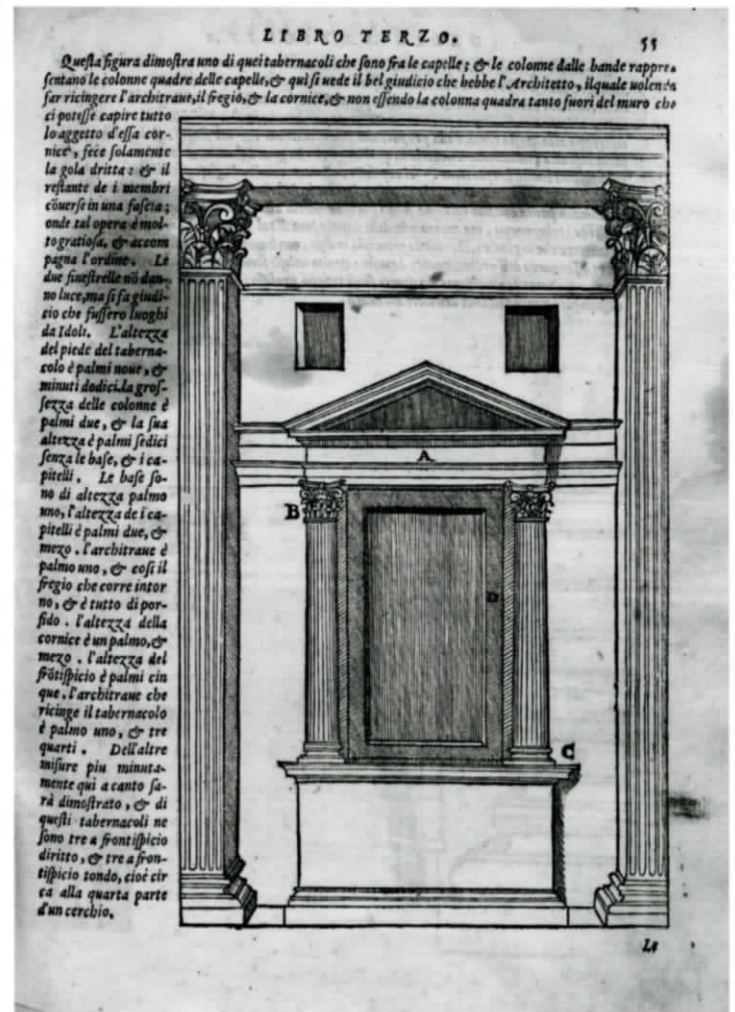 LIBRO TERZO. 55
Questa figura dimostra uno di quei tabernacoli che sono fra le capelle; & le colonne dalle bande rappre-
sentano le colonne quadre delle capelle, & quì si uede il bel giudicio che hebbe l'Architetto, ilquale uolendo
far ricingere l'architraue, il fregio, & la cornice, & non essendo la colonna quadra tanto fuori del muro che
ci potesse capire tutto
lo aggetto d'essa cor-
nice, fece solamente
la gola dritta: & il
restante de i membri
cōuerse in una fascia;
onde tal opera è mol-
to gratiosa, & accom
pagna l'ordine. Le
due finestrelle nō dan-
no luce, ma si fa giudi-
cio che fussero luoghi
da Idoli. L'altezza
del piede del taberna-
colo è palmi noue, &
minuti dodici. la gros-
sezza delle colonne è
palmi due, & la sua
altezza è palmi sedici
senza le base, & i ca-
pitelli. Le base so-
no di altezza palmo
uno, l'altezza de i ca-
pitelli è palmi due, &
mezo. l'architraue è
palmo uno, & cosi il
fregio che corre intor
no, & è tutto di por-
fido. l'altezza della
cornice è un palmo, &
mezo. l'altezza del
frōtispicio è palmi cin
que. l'architraue che
ricinge il tabernacolo
è palmo uno, & tre
quarti. Dell'altre
misure piu minuta-
mente qui a canto sa-
rà dimostrato, & di
questi tabernacoli ne
sono tre a frontispicio
diritto, & tre a fron-
tispicio tondo, cioè cir
ca alla quarta parte
d'un cerchio.
A
B
D
C
Le